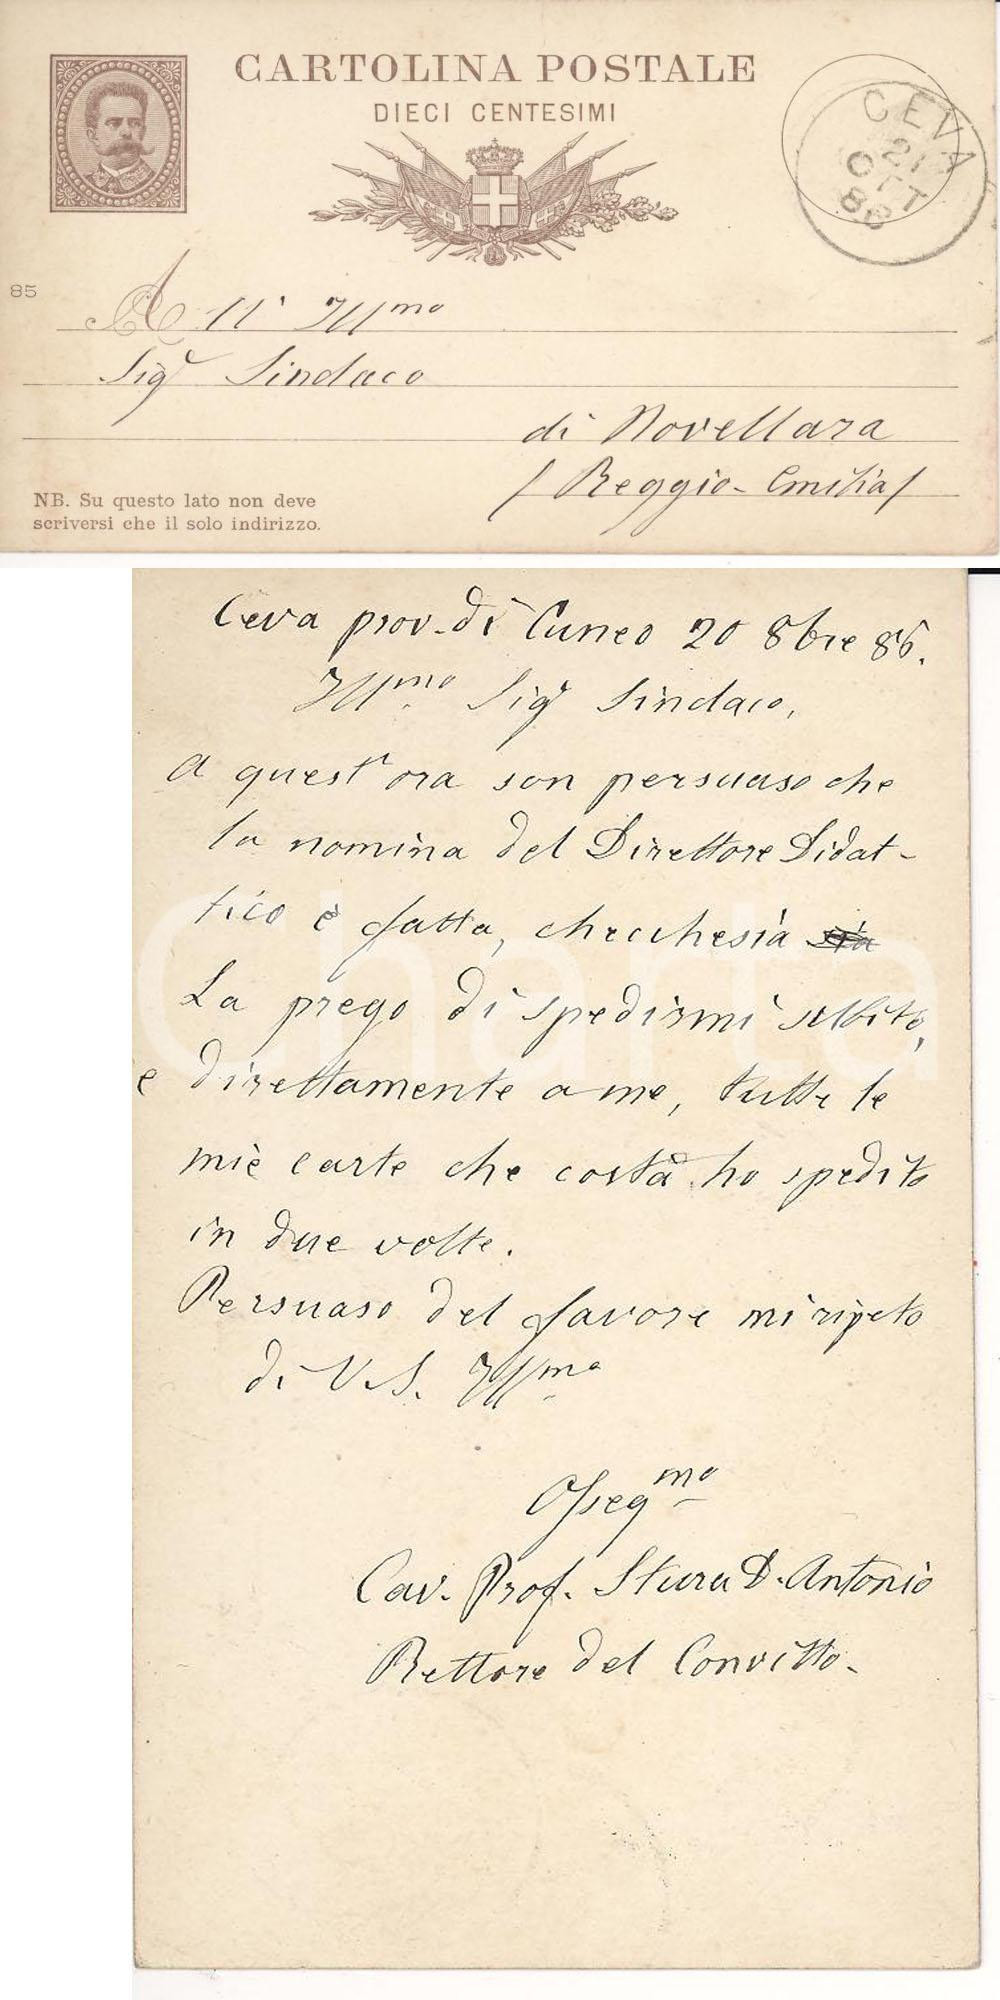 CARTOLINA POSTALE
DIECI CENTESIMI
CEVA
21
OTT
86
85
All' Ill.mo
Sigr Sindaco
di Novellara
(Reggio-Emilia)
NB. Su questo lato non deve
scriversi che il solo indirizzo.
Ceva prov. di Cuneo 20 8bre 86.
Ill.mo Sigr Sindaco,
A quest'ora son persuaso che
la nomina del Direttore Didat-
tico è fatta, checchesia sia
La prego di spedirmi subito,
e direttamente a me, tutte le
mie carte che costà ho spedito
in due volte.
Persuaso del favore mi ripeto
di V.S. Ill.ma
Osseq.mo
Cav. Prof. Stura D. Antonio
Rettore del Convitto.
Charta